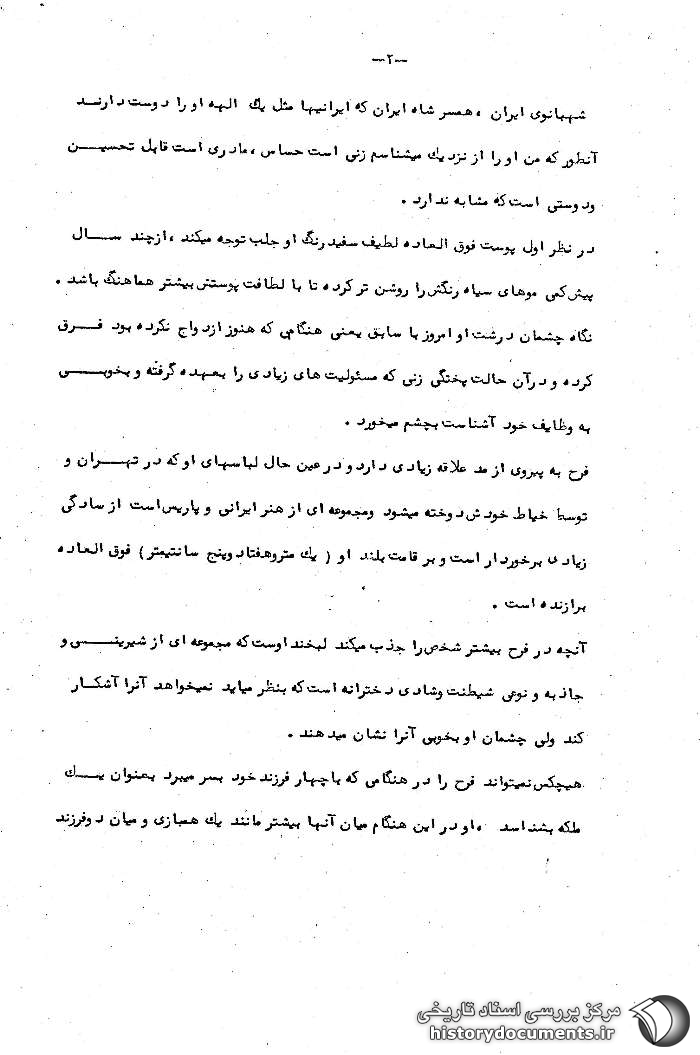 —۲—
شهبانوی ایران ، همسر شاه ایران که ایرانیها مثل یک الهه او را دوست دارند
آنطور که من او را از نزدیک میشناسم زنی است حساس ، مادری است قابل تحسین
و دوستی است که مشابه ندارد .
در نظر اول پوست فوق العاده لطیف سفید رنگ او جلب توجه میکند ، از چند سال
پیش کمی موهای سیاه رنگش را روشن تر کرده تا با لطافت پوستش بیشتر هماهنگ باشد .
نگاه چشمان درشت او امروز با سابق یعنی هنگامی که هنوز ازدواج نکرده بود فرق
کرده و در آن حالت پختگی زنی که مسئولیت های زیادی را بعهده گرفته و بخوبی
به وظایف خود آشناست بچشم میخورد .
فرح به پیروی از مد علاقه زیادی دارد و در عین حال لباسهای او که در تهران و
توسط خیاط خودش دوخته میشود ومجموعه ای از هنر ایرانی و پاریس است از سادگی
زیادی برخوردار است و بر قامت بلند او ( یک متر و هفتاد و پنج سانتیمتر ) فوق العاده
برازنده است .
آنچه در فرح بیشتر شخص را جذب میکند لبخند اوست که مجموعه ای از شیرینی و
جاذبه و نوعی شیطنت وشادی دخترانه است که بنظر میاید نمیخواهد آنرا آشکار
کند ولی چشمان او بخوبی آنرا نشان میدهند .
هیچکس نمیتواند فرح را در هنگامی که با چهار فرزند خود بسر میبرد بعنوان یک
ملکه بشناسد ، او در این هنگام میان آنها بیشتر مانند یک همبازی و میان دو فرزند
مرکز بررسی اسناد تاریخی
historydocuments.ir